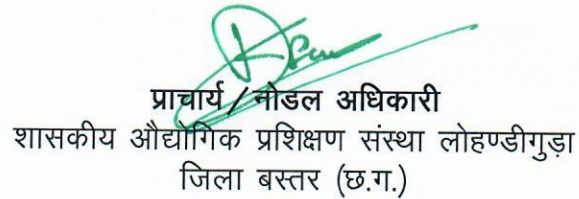 प्राचार्य / नोडल अधिकारी
शासकीय औद्योगिक प्रशिक्षण संस्था लोहण्डीगुड़ा
जिला बस्तर (छ.ग.)